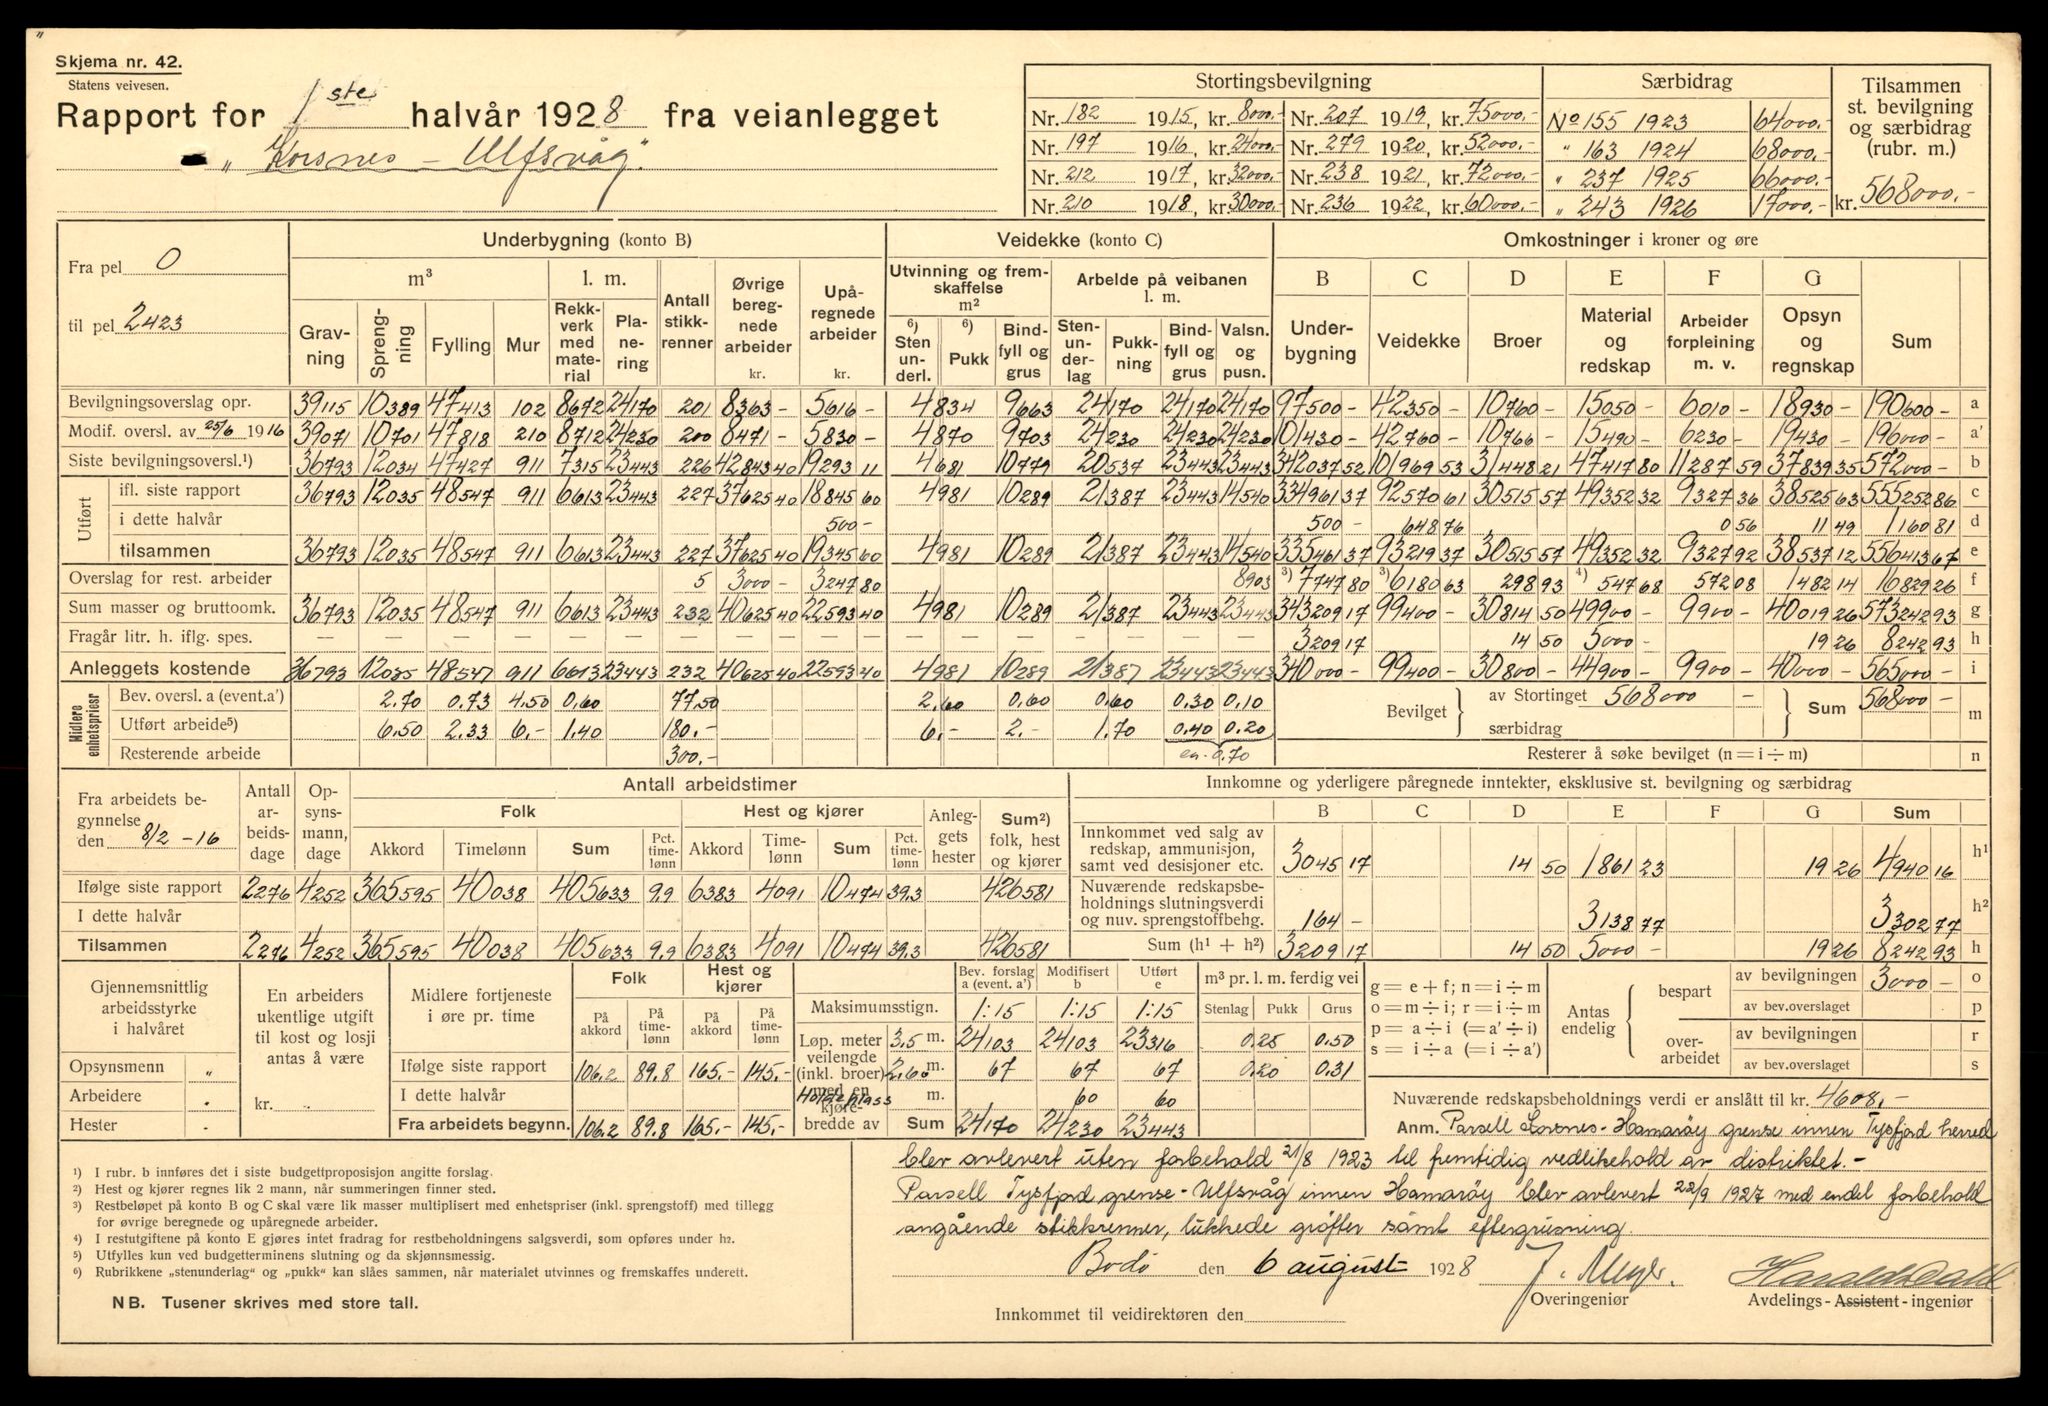 Skjema nr. 42.
Statens veivesen.
Rapport for 1ste halvår 1928 fra veianlegget
„Korsnes – Ulfsvåg“.
Stortingsbevilgning
Nr. 182 1915, kr. 8000,- Nr. 207 1919, kr. 75000,-
Nr. 197 1916, kr. 24000,- Nr. 279 1920, kr. 52000,-
Nr. 212 1917, kr. 32000,- Nr. 238 1921, kr. 72000,-
Nr. 210 1918, kr. 30000,- Nr. 236 1922, kr. 60000,-
Særbidrag
No 155 1923 64000,-
" 163 1924 68000,-
" 237 1925 66000,-
" 243 1926 17000,-
Tilsammen
st. bevilgning
og særbidrag
(rubr. m.)
kr. 568000,-
Fra pel 0
til pel 2423
Underbygning (konto B) Veidekke (konto C) Omkostninger i kroner og øre
m³ l. m. Antall stikkrenner Øvrige beregnede arbeider kr. Upåregnede arbeider kr.
Utvinning og fremskaffelse m² Arbeide på veibanen l. m.
B C D E F G
Gravning Sprengning Fylling Mur Rekkverk med material Planering
6) Sten underl. 6) Pukk Bindfyll og grus Stenunderlag Pukkning Bindfyll og grus Valsn. og pusn.
Underbygning Veidekke Broer Material og redskap Arbeider forpleining m. v. Opsyn og regnskap Sum
Bevilgningsoverslag opr. 39115 10389 47413 102 8672 24170 201 8363 - 5616 - 4834 9663 24170 24170 24170 97500 - 42350 - 10760 - 15050 - 6010 - 18930 - 190600 - a
Modif. oversl. av 25/6 1916 39071 10701 47818 210 8712 24230 200 8471 - 5830 - 4870 9703 24230 24230 24230 101430 - 42760 - 10766 - 15490 - 6230 - 19430 - 196000 - a'
Siste bevilgningsoversl.¹) 36793 12034 47427 911 7315 23443 226 42843 40 19293 11 4681 10779 20537 23443 23443 342037 52 101969 53 31448 21 47417 80 11287 59 37839 35 572000 - b
Utført
ifl. siste rapport 36793 12035 48547 911 6613 23443 227 37625 40 18845 60 4981 10289 21387 23443 14540 334961 37 92570 61 30515 57 49352 32 9327 36 38525 63 555252 86 c
i dette halvår 500 - 500 - 648 76 0 56 11 49 1160 81 d
tilsammen 36793 12035 48547 911 6613 23443 227 37625 40 19345 60 4981 10289 21387 23443 14540 335461 37 93219 37 30515 57 49352 32 9327 92 38537 12 556413 67 e
Overslag for rest. arbeider 5 3000 - 3247 80 8903 3) 7747 80 3) 6180 63 298 93 4) 547 68 572 08 1482 14 16829 26 f
Sum masser og bruttoomk. 36793 12035 48547 911 6613 23443 232 40625 40 22593 40 4981 10289 21387 23443 23443 343209 17 99400 - 30814 50 49900 - 9900 - 40019 26 573242 93 g
Fragår litr. h. iflg. spes. — — — — — — — — — — — — — — 3209 17 14 50 5000 - 19 26 8242 93 h
Anleggets kostende 36793 12035 48547 911 6613 23443 232 40625 40 22593 40 4981 10289 21387 23443 23443 340000 - 99400 - 30800 - 44900 - 9900 - 40000 - 565000 - i
Midlere enhetspriser
Bev. oversl. a (event. a') 2.70 0.73 4.50 0.60 77.50 2.60 0.60 0.60 0.30 0.10
Utført arbeide⁵) 6.50 2.33 6.- 1.40 180.- 6.- 2.- 1.70 0.40 0.20
Resterende arbeide 300.- en. 0.70
Bevilget av Stortinget 568000 - særbidrag Sum 568000 - m
Resterer å søke bevilget (n = i ÷ m) n
Fra arbeidets begynnelse den 8/2 -16
Antall arbeidsdage Opsynsmann, dage
Antall arbeidstimer
Folk Hest og kjører Anleggets hester Sum²) folk, hest og kjører
Akkord Timelønn Sum Pct. timelønn Akkord Timelønn Sum Pct. timelønn
Ifølge siste rapport 2276 4252 365595 40038 405633 9.9 6383 4091 10474 39.3 426581
I dette halvår
Tilsammen 2276 4252 365595 40038 405633 9.9 6383 4091 10474 39.3 426581
Innkomne og yderligere påregnede inntekter, eksklusive st. bevilgning og særbidrag
B C D E F G Sum
Innkommet ved salg av redskap, ammunisjon, samt ved desisjoner etc. 3045 17 14 50 1861 23 19 26 4940 16 h¹
Nuværende redskapsbeholdnings slutningsverdi og nuv. sprengstoffbehg. 164 - 3138 77 3302 77 h²
Sum (h¹ + h²) 3209 17 14 50 5000 - 19 26 8242 93 h
Gjennemsnittlig arbeidsstyrke i halvåret
Opsynsmenn "
Arbeidere .
Hester .
En arbeiders ukentlige utgift til kost og losji antas å være
kr.
Midlere fortjeneste i øre pr. time
Folk Hest og kjører
På akkord På timelønn På akkord På timelønn
Ifølge siste rapport 106.2 89.8 165.- 145.-
I dette halvår
Fra arbeidets begynn. 106.2 89.8 165.- 145.-
Bev. forslag a (event. a') Modifisert b Utført e
Maksimumsstign. 1:15 1:15 1:15
Løp. meter veilengde (inkl. broer) med en kjørebredde av
3.5 m. 24103 24103 23316
2.60 m. 67 67 67
m. 60 60
Sum 24170 24230 23443
m³ pr. l. m. ferdig vei
Stenlag Pukk Grus
0.25 0.50
0.20 0.31
g = e + f; n = i ÷ m
o = m ÷ i; r = i ÷ m
p = a ÷ i (= a' ÷ i)
s = i ÷ a (= i ÷ a')
Antas endelig
bespart av bevilgningen 3000 - o
av bev.overslaget p
overarbeidet av bevilgningen r
av bev.overslaget s
Nuværende redskapsbeholdnings verdi er anslått til kr. 4608,-
Anm. Parsell Korsnes - Hamarøy grense innen Tysfjord herred
blev avlevert uten forbehold 21/8 1923 til fremtidig vedlikehold av distriktet. -
Parsell Tysfjord grense - Ulfsvåg innen Hamarøy blev avlevert 22/9 1927 med endel forbehold
angående stikkrenner, lukkede grøfter samt eftergrusning.
Bodø den 6 august 1928 J. Meyer. Harald Dahl
Overingeniør Avdelings- Assistent - ingeniør
Innkommet til veidirektøren den
¹) I rubr. b innføres det i siste budgettproposisjon angitte forslag.
²) Hest og kjører regnes lik 2 mann, når summeringen finner sted.
³) Restbeløpet på konto B og C skal være lik masser multiplisert med enhetspriser (inkl. sprengstoff) med tillegg
for øvrige beregnede og upåregnede arbeider.
⁴) I restutgiftene på konto E gjøres intet fradrag for restbeholdningens salgsverdi, som opføres under h2.
⁵) Utfylles kun ved budgetterminens slutning og da skjønnsmessig.
⁶) Rubrikkene „stenunderlag“ og „pukk“ kan slåes sammen, når materialet utvinnes og fremskaffes underett.
NB. Tusener skrives med store tall.